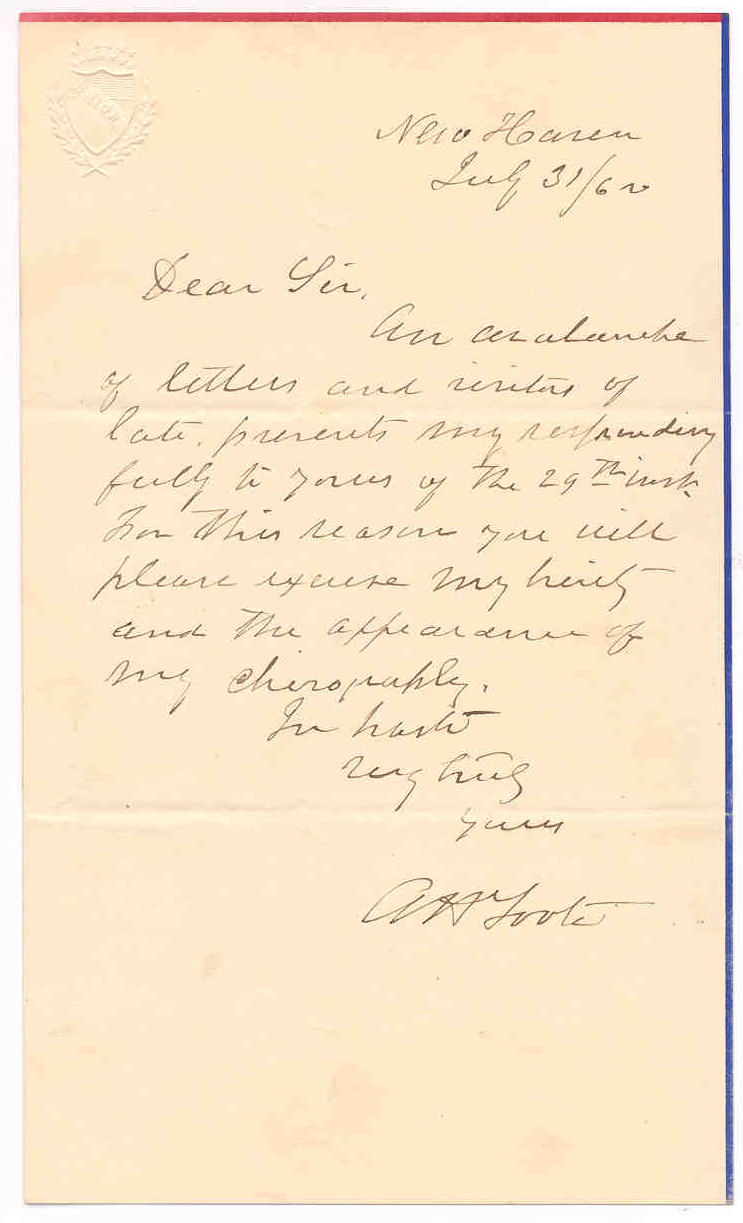 UNION
New Haven
July 31/62
Dear Sir,
An avalanche
of letters and visitors of
late, prevents my responding
fully to yours of the 29th inst.
For this reason you will
please excuse my brevity
and the appearance of
my chirography.
In haste
very truly
yours
A H Foote